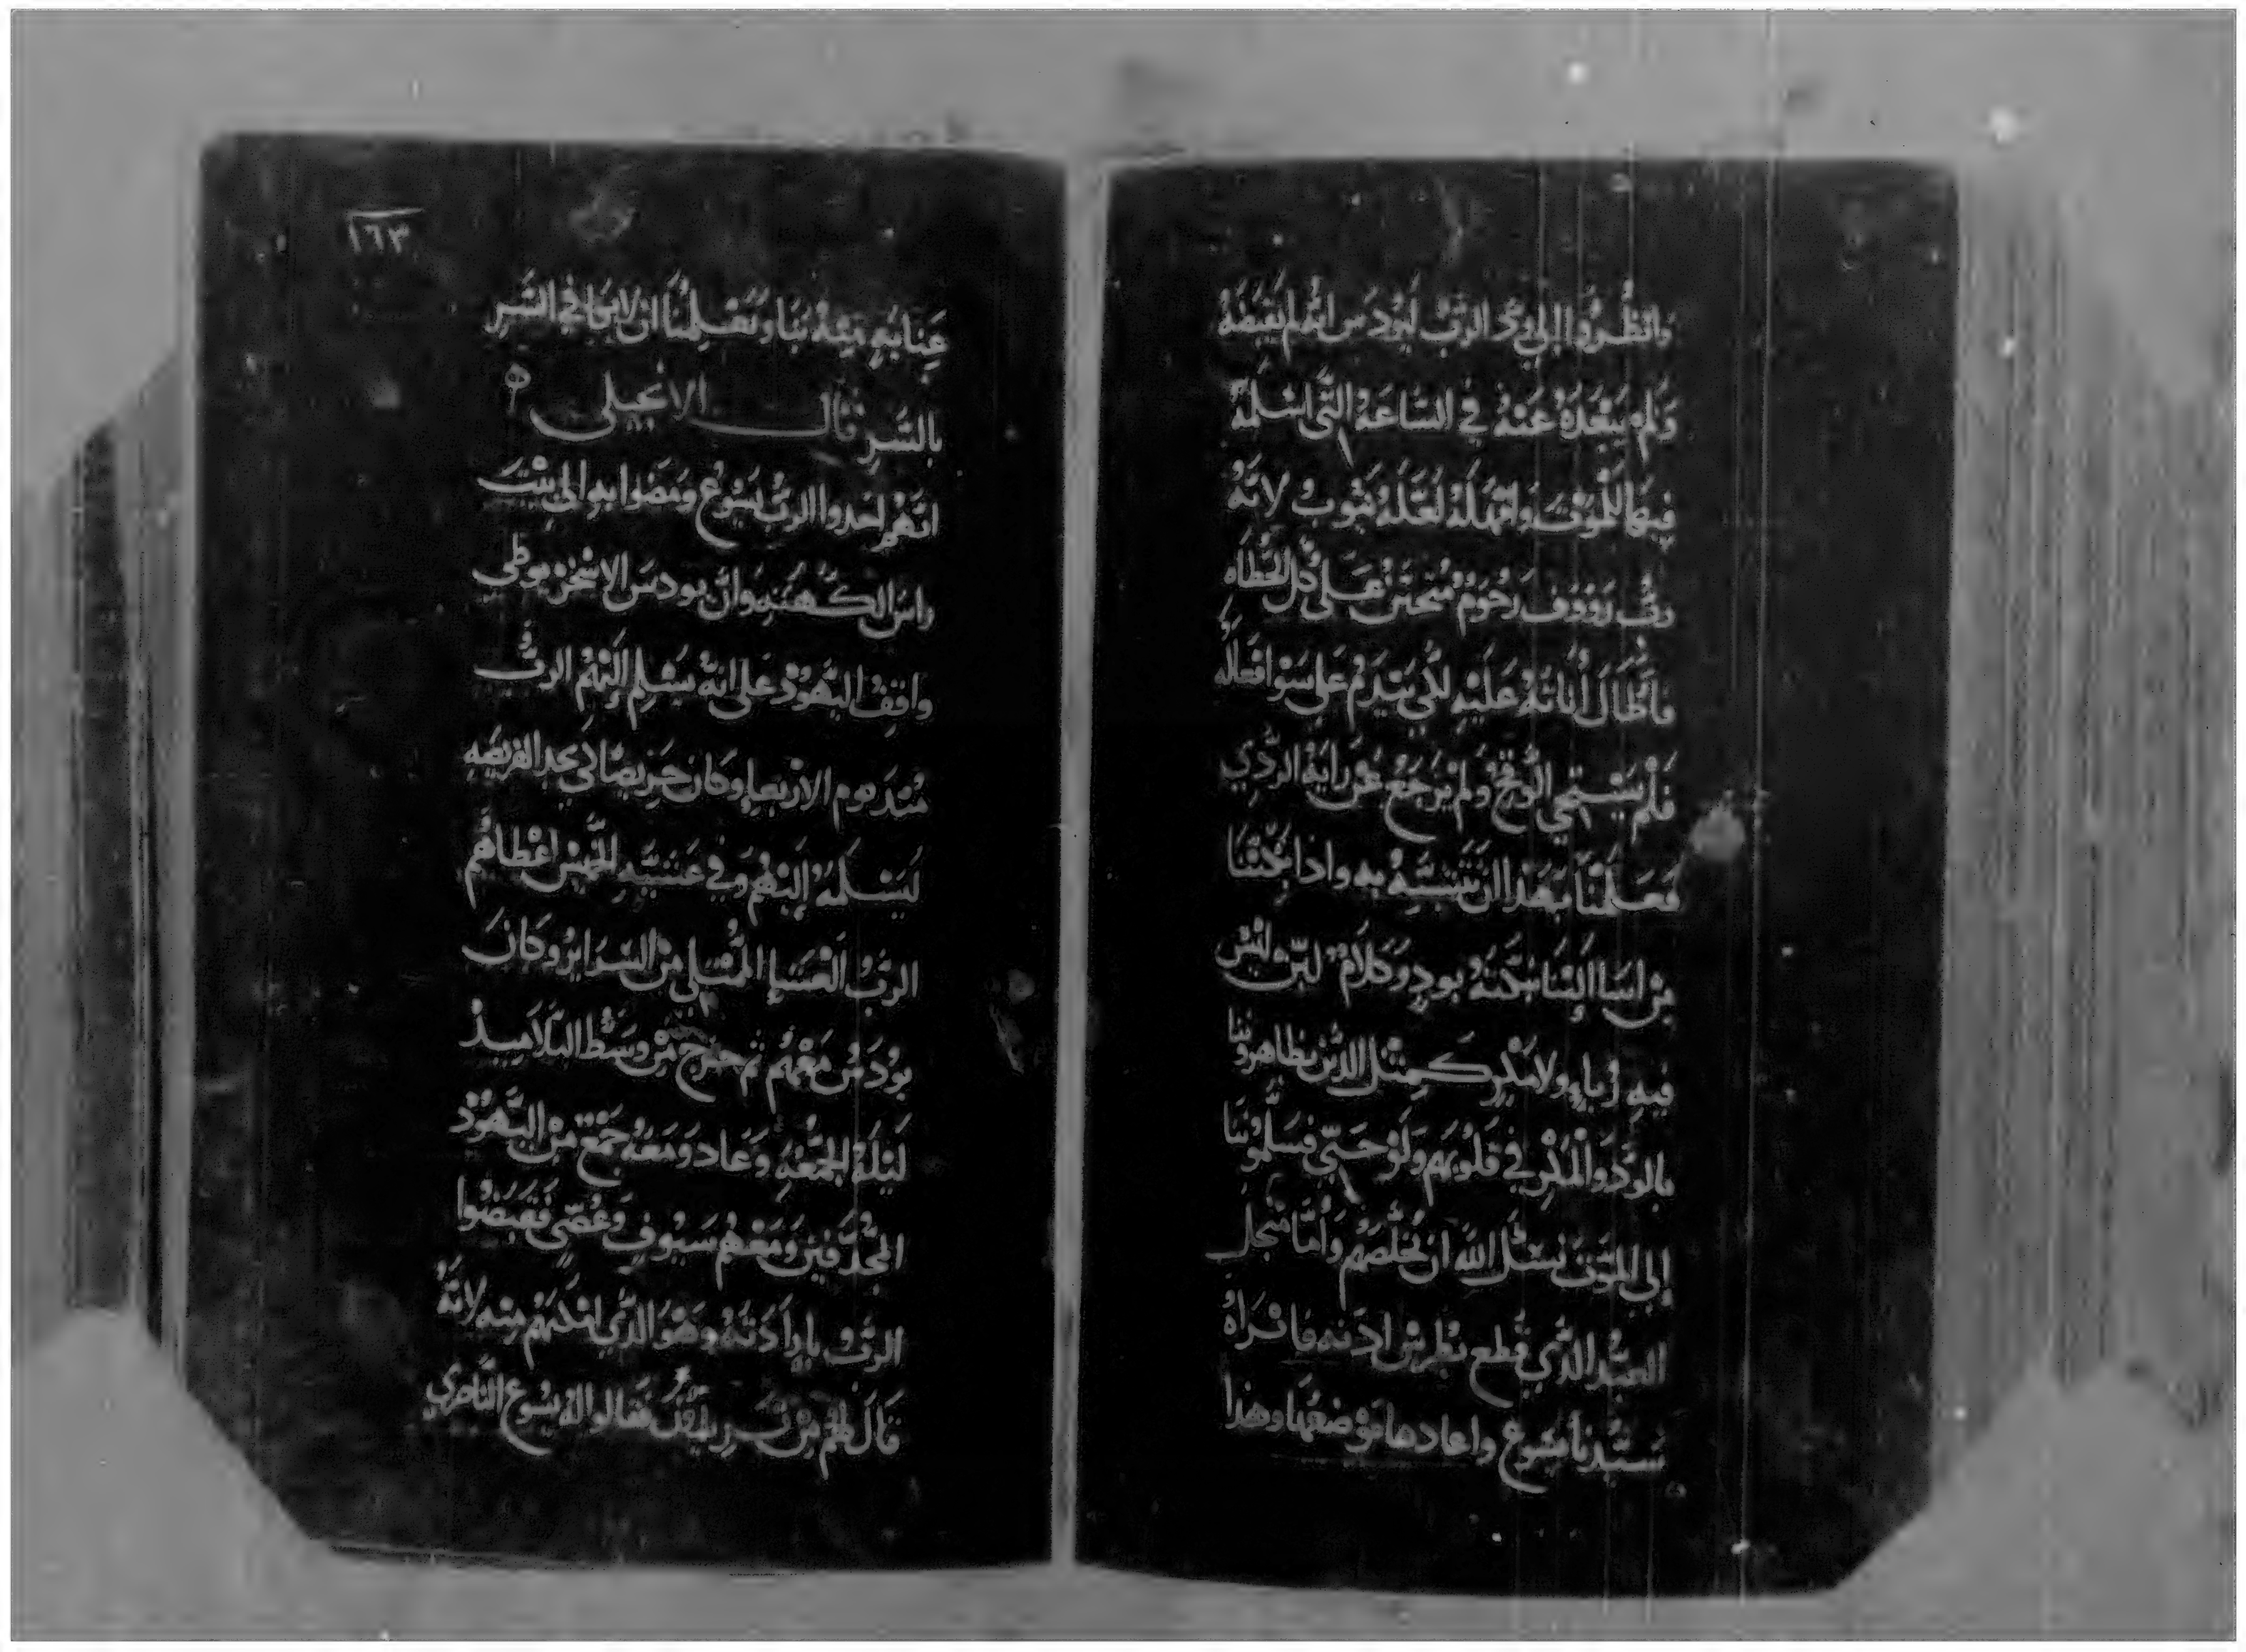 وانظروا الي ود الرب ليودس انه لم يبغضه
ولم يبعده عنه في الساعة التي اسلمه
فيها للموت وامهله لعله يتوب لانه
رب رووف رحوم متحنن على كل الخطاه
فاطال اناته عليه لكي يندم على سو افعاله
فلم يستحي الوقح ولم يرجع عن رايه الردي
فعلمنا بهدا ان نتشبه به واذا بختنا
من اسا الينا نبكته بود وكلام لين وليس
فيه رياء ولا مذر كمثل الذين يظاهرونا
بالود والمذر في قلوبهم ولو حتى يسلمونا
إلى الموت نسئل الله ان يخلصهم واما منجل
العبد الذي قطع بطرس ادنه وابراه
سيدنا يسوع واعادها موضعها وهذا
١٦٣
عنايته بنا وتعليمنا ان لانجافي الشر
بالشر قال الانجيلي
انهم اخدوا الرب يسوع ومضوا به الى بيت
راس الكهنه وان يودس الاسخريوطي
واقف اليهود على انه يسلم إليهم الرب
مند يوم الاربعا وكان حريصا لكي يجد الفريصه
ليسلمه إليهم وفي عشية الخميس اعطاهم
الرب العشا الممتلي من السراير وكان
يودس معهم ثم خرج من وسط التلاميد
ليلة الجمعه وعاد ومعه جمع من اليهود
المجدفين ومعهم سيوف وعصي فقبضوا
الرب بارادته وهو الذي امكنهم منه لانه
قال لهم من تريدون فقالوا له يسوع الناصري